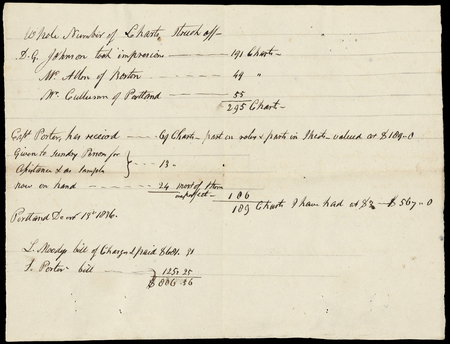 Whole Number of Charts Struck off—
D. G. Johnson took impression —— 191 Charts—
Mr Allen of Boston —— 49 "
Mr Cullinan of Portland —— 55
295 Chart—
Capt Porter, has receivd —— 69 Charts— part on roles & parts in Sheets— valued at $189=0
Given to sundry Person for
Assistance & as samples —— 13 "
now on hand —— 24 most of them imperfect— 106
189 Charts I have had at $3— $567=0
Portland 13th 1836.
L. Moody bill of Charges I paid $681. 31
S. Porter bill —— 125. 25
$ 806. 56